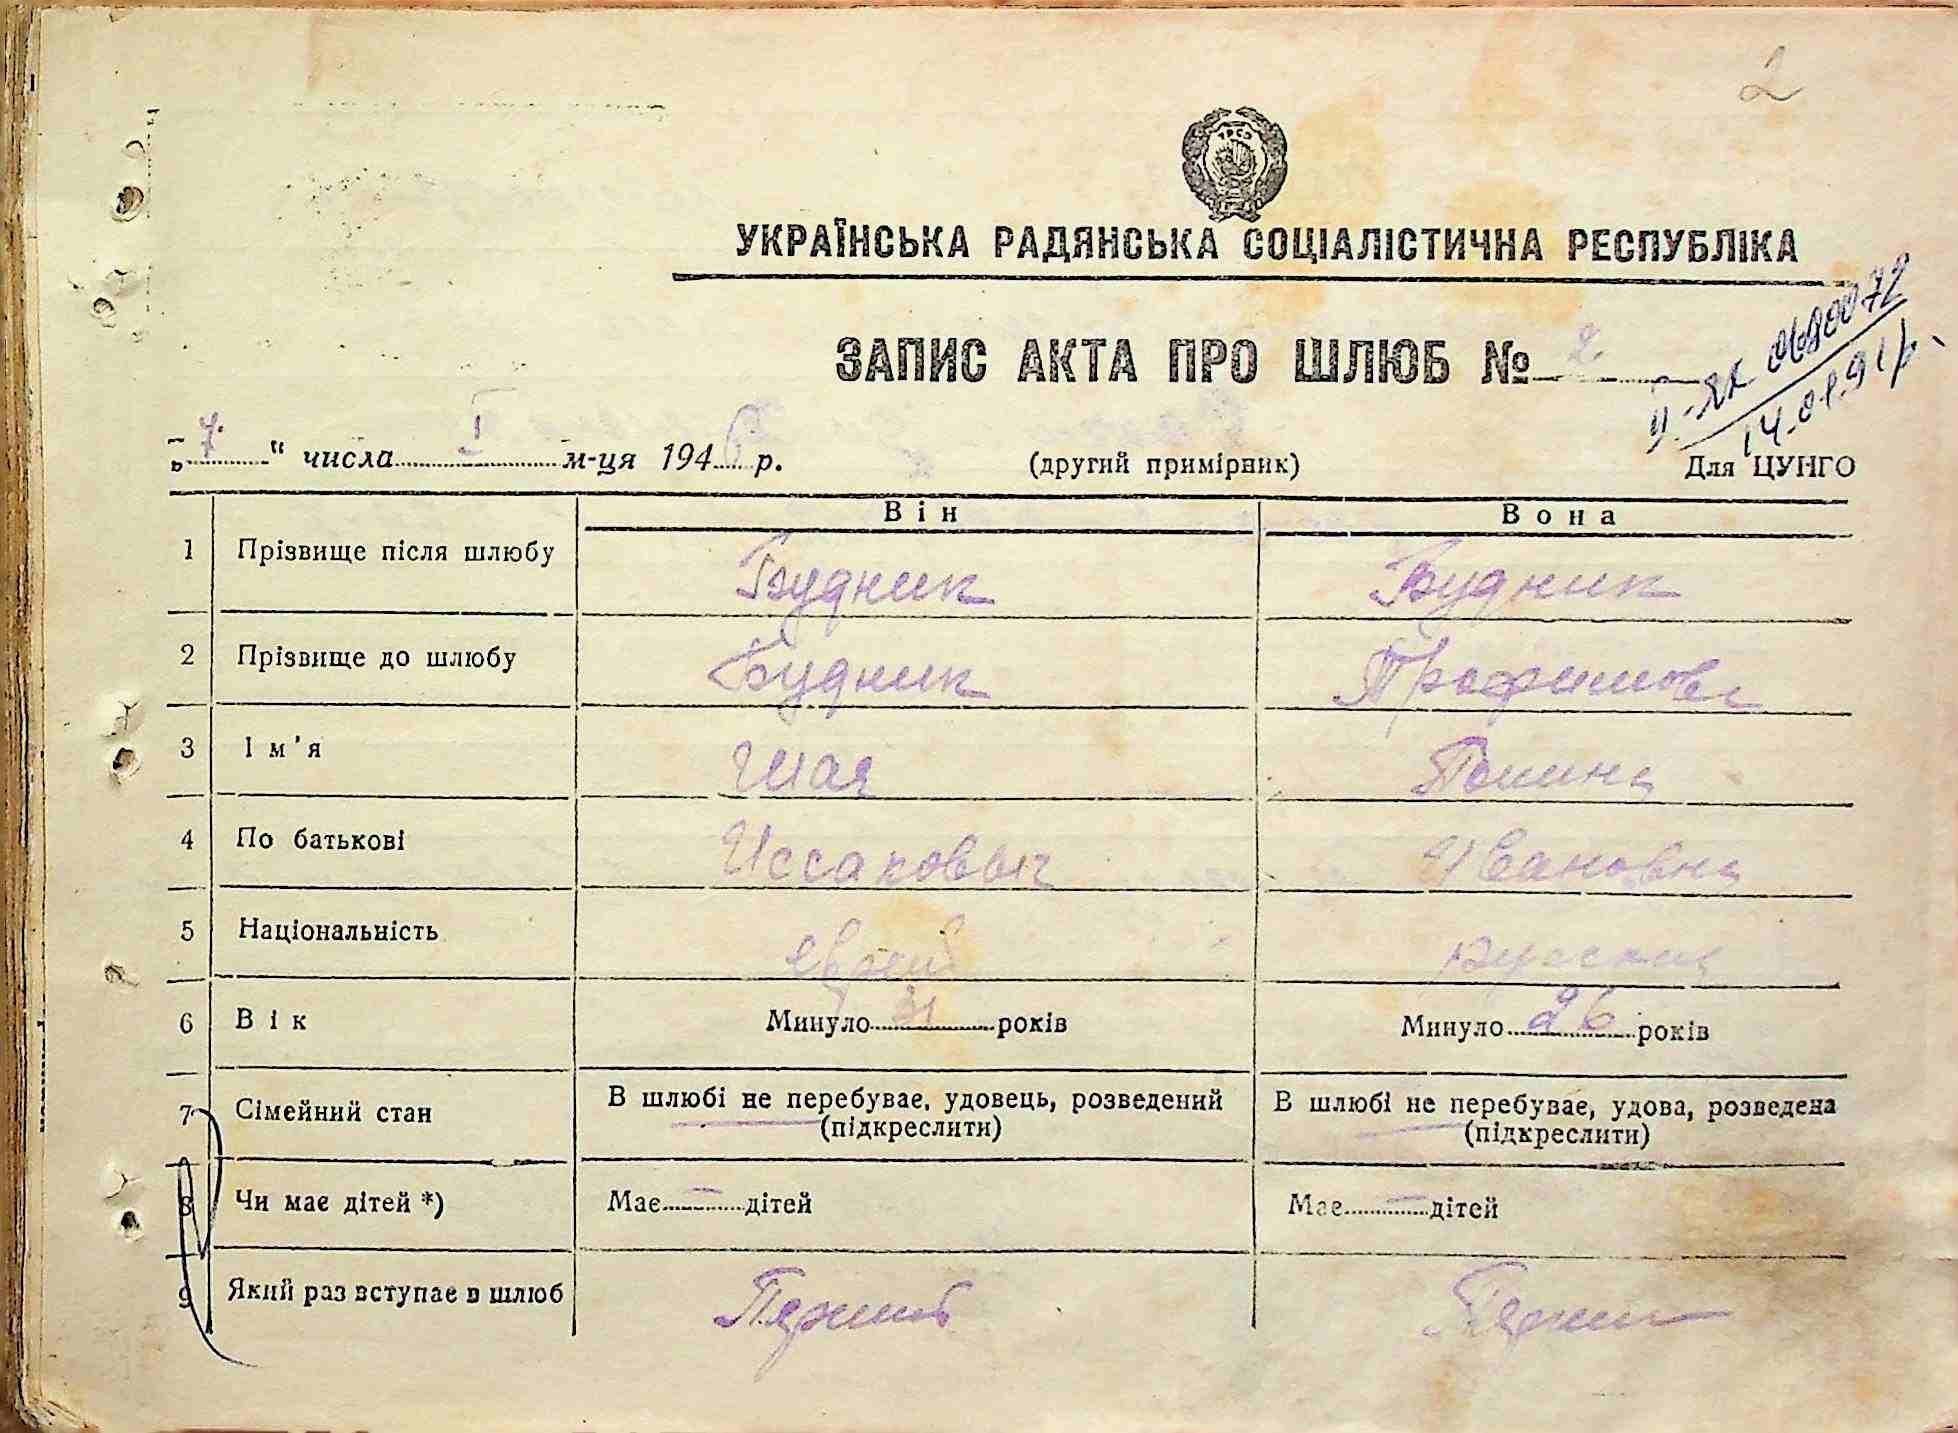 2
УКРАЇНСЬКА РАДЯНСЬКА СОЦІАЛІСТИЧНА РЕСПУБЛІКА
ЗАПИС АКТА ПРО ШЛЮБ № 2
II-ЯК 0680072
14.01.91р.
„7“ числа I м-ця 1946 р. (другий примірник) Для ЦУНГО
Він Вона
1 Прізвище після шлюбу Будник Будник
2 Прізвище до шлюбу Будник Трофимова
3 Ім'я Шая Полина
4 По батькові Иссаковыч Ивановна
5 Національність еврей русская
6 Вік Минуло 31 років Минуло 26 років
7 Сімейний стан В шлюбі не перебуває, удовець, розведений (підкреслити) В шлюбі не перебуває, удова, розведена (підкреслити)
8 Чи має дітей *) Має — дітей Має — дітей
9 Який раз вступає в шлюб Перший